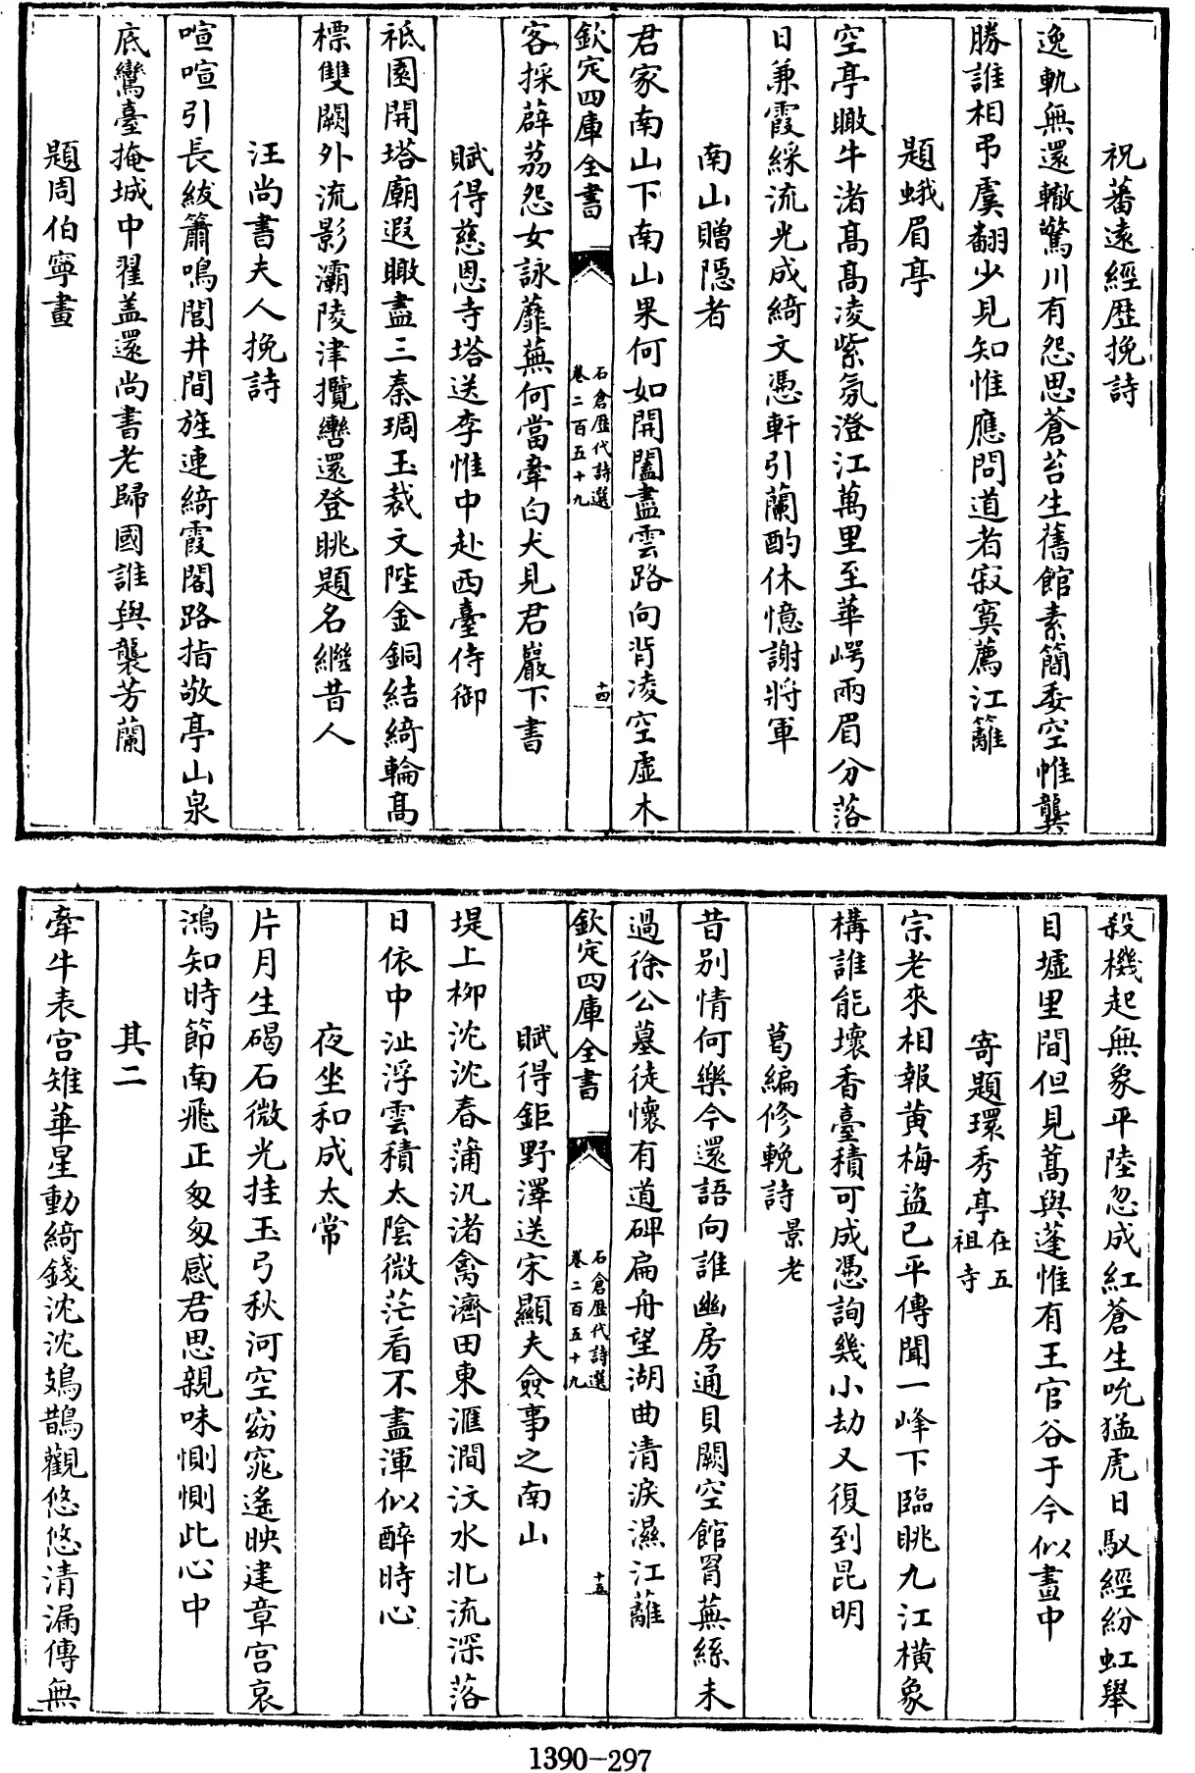 祝蕃遠經歴挽詩
逸軌無還轍驚川有怨思蒼苔生舊館素簡委空帷龔
勝誰相弔虞翻少見知惟應問道者寂寞薦江籬
題蛾眉亭
空亭瞰牛渚髙髙凌紫氛澄江萬里至華崿兩眉分落
日兼霞綵流光成綺文憑軒引蘭酌休憶謝將軍
南山贈隱者
君家南山下南山果何如開闔盡雲路向背凌空虛木
欽定四庫全書
石倉歴代詩選
卷二百五十九
十四
客採薜荔怨女詠蘼蕪何當牽白犬見君巖下書
賦得慈恩寺塔送李惟中赴西臺侍御
祇園開塔廟遐瞰盡三秦琱玉裁文陛金銅結綺輪髙
標雙闕外流影灞陵津攬轡還登眺題名繼昔人
汪尚書夫人挽詩
喧喧引長紼簫鳴閭井間旌連綺霞閣路指敬亭山泉
底鸞臺掩城中翟蓋還尚書老歸國誰與襲芳蘭
題周伯寧畫
殺機起無象平陸忽成紅蒼生吮猛虎日馭經紛虹舉
目墟里間但見蒿與蓬惟有王官谷于今似畫中
寄題環秀亭在五祖寺
宗老來相報黄梅盜已平傳聞一峰下臨眺九江横象
構誰能壞香臺積可成憑詢幾小劫又復到昆明
葛編修輓詩景老
昔别情何樂今還語向誰幽房通貝闕空館罥蕪絲未
過徐公墓徒懷有道碑扁舟望湖曲清淚濕江蘺
欽定四庫全書
石倉歴代詩選
卷二百五十九
十五
賦得鉅野澤送宋顯夫僉事之南山
堤上栁沈沈春蒲汎渚禽濟田東滙澗汶水北流深落
日依中沚浮雲積太陰微茫看不盡渾似醉時心
夜坐和成太常
片月生碣石微光挂玉弓秋河空窈窕遙映建章宫哀
鴻知時節南飛正匆匆感君思親味惻惻此心中
其二
牽牛表宫雉華星動綺錢沈沈鳷鵲觀悠悠清漏傳無
1390-297